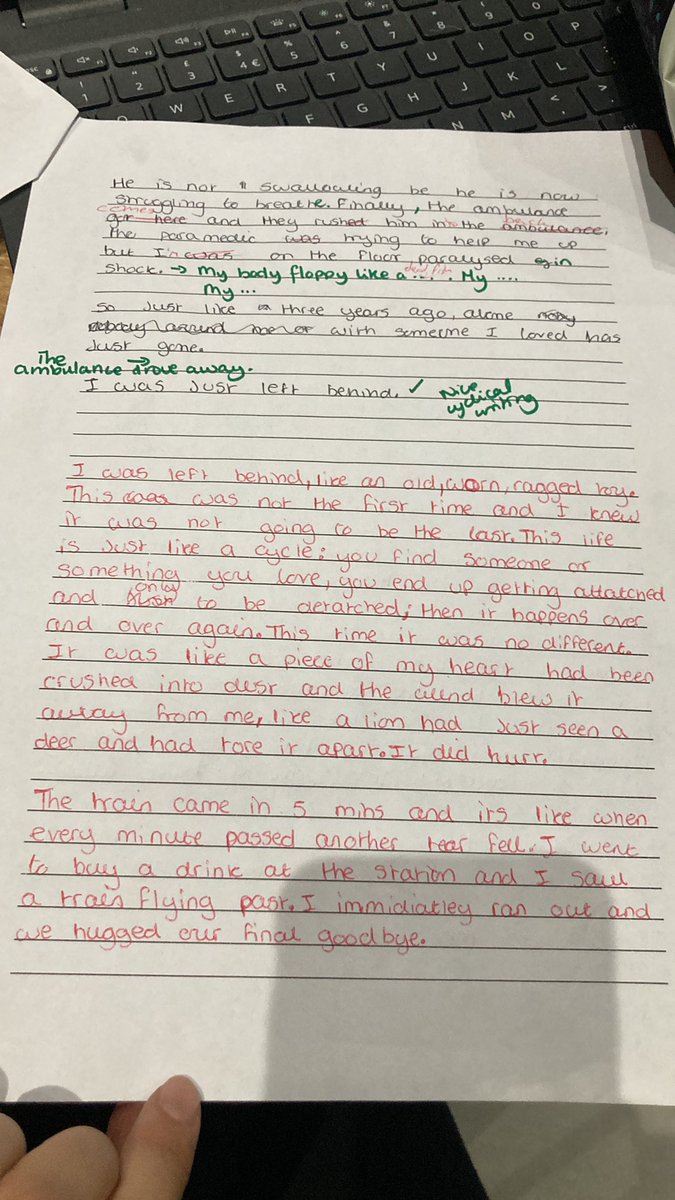 He is not swallowing be he is now
struggling to breathe. Finally, the ambulance
comes
got here and they rushed him into the ambulance.
The paramedic was trying to help me up
but I was on the floor, paralysed in
shock. → My body floppy like a dead fish .... My ....
My ...
So Just like three years ago, alone
nobody around me or with someone I loved has
Just gone.
The →
ambulance drove away.
I was Just left behind. ✓ Nice
cyclical
writing
I was left behind, like an old, worn, ragged toy.
This was was not the first time and I knew
it was not going to be the last. This life
is Just like a cycle: you find someone or
something you love, you end up getting attatched
only
and to be detatched; then it happens over
and over again. This time it was no different.
It was like a piece of my heart had been
crushed into dust and the wind blew it
away from me, like a lion had Just seen a
deer and had tore it apart. It did hurt.
The train came in 5 mins and its like when
every minute passed another tear fell. I went
to buy a drink at the station and I saw
a train flying past. I immidiatley ran out and
we hugged our final goodbye.